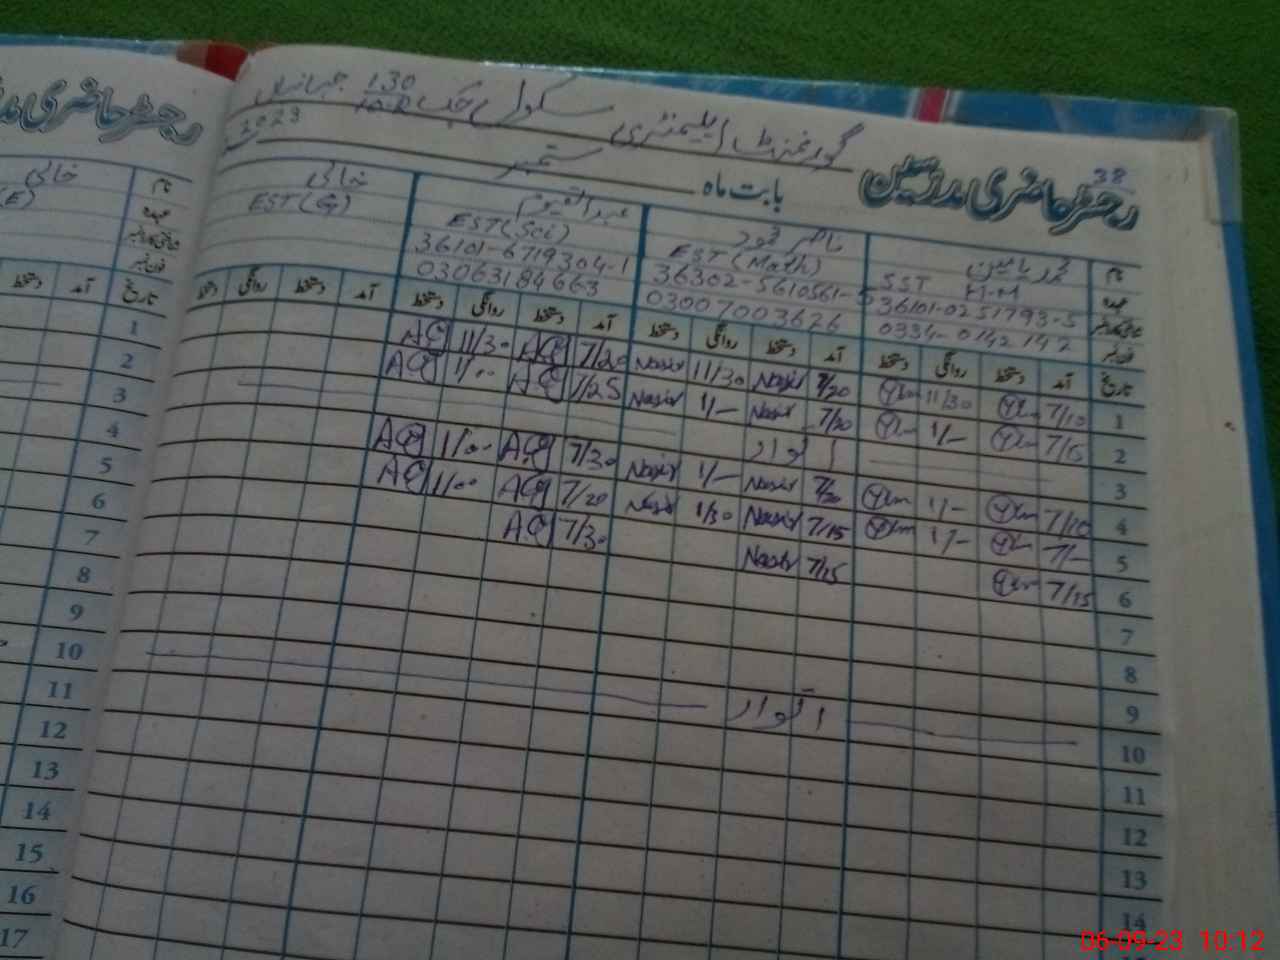 38
گورنمنٹ ایلیمنٹری سکول چک 130
رجسٹر حاضری مدرسین
بابت ماہ ستمبر 2023
نام
ناصر محمود
عبدالقیوم
خالی
SST M-M
EST (Math)
EST (Sci)
EST (G)
36101-0251793-5
36302-5610561-5
36101-6719304-1
0334-0142142
03007003626
03063184663
تاریخ آمد دستخط روانگی دستخط آمد دستخط روانگی دستخط آمد دستخط روانگی دستخط آمد دستخط روانگی دستخط
1 7/10 11/30 7/20 Nasir 11/30 Nasir 7/20 AQ 11/30 AQ
2 7/15 1/- 7/20 Nasir 1/- Nasir 7/25 AQ 1/00 AQ
3 اتوار
4 7/10 1/- 7/20 Nasir 1/- Nasir 7/30 AQ 1/00 AQ
5 7/- 1/- 7/15 Nasir 1/30 Nasir 7/20 AQ 1/00 AQ
6 7/15 7/15 Nasir 7/30 AQ
7
8
9
10 اتوار
11
12
13
14
رجسٹر حاضری
نام
خالی
(E)
تاریخ آمد دستخط
1
2
3
4
5
6
7
8
9
10
11
12
13
14
15
16
17
06-09-23 10:12